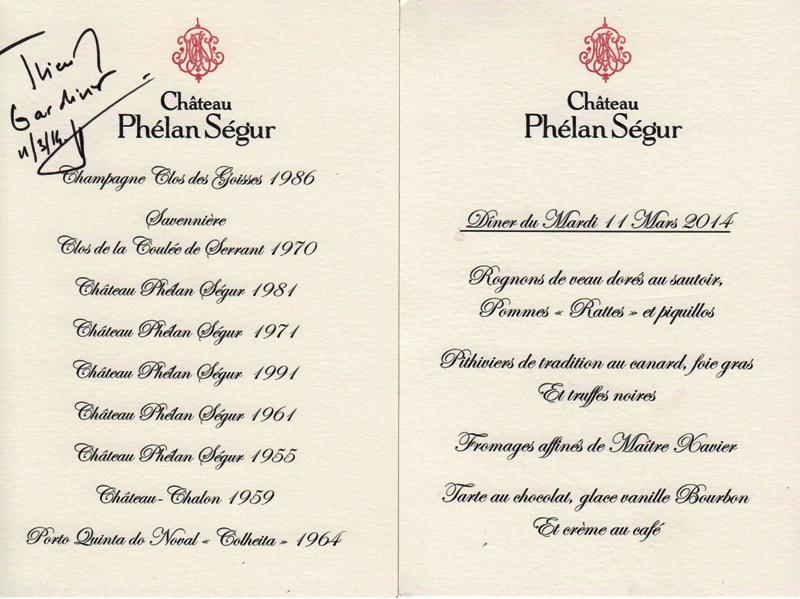 Thierry
Gardinier
11/3/14
Château
Phélan Ségur
Champagne Clos des Goisses 1986
Savennière
Clos de la Coulée de Serrant 1970
Château Phélan Ségur 1981
Château Phélan Ségur 1971
Château Phélan Ségur 1991
Château Phélan Ségur 1961
Château Phélan Ségur 1955
Château-Chalon 1959
Porto Quinta do Noval « Colheita » 1964
Château
Phélan Ségur
Dîner du Mardi 11 Mars 2014
Rognons de veau dorés au sautoir,
Pommes « Rattes » et piquillos
Pithiviers de tradition au canard, foie gras
Et truffes noires
Fromages affinés de Maître Xavier
Tarte au chocolat, glace vanille Bourbon
Et crème au café